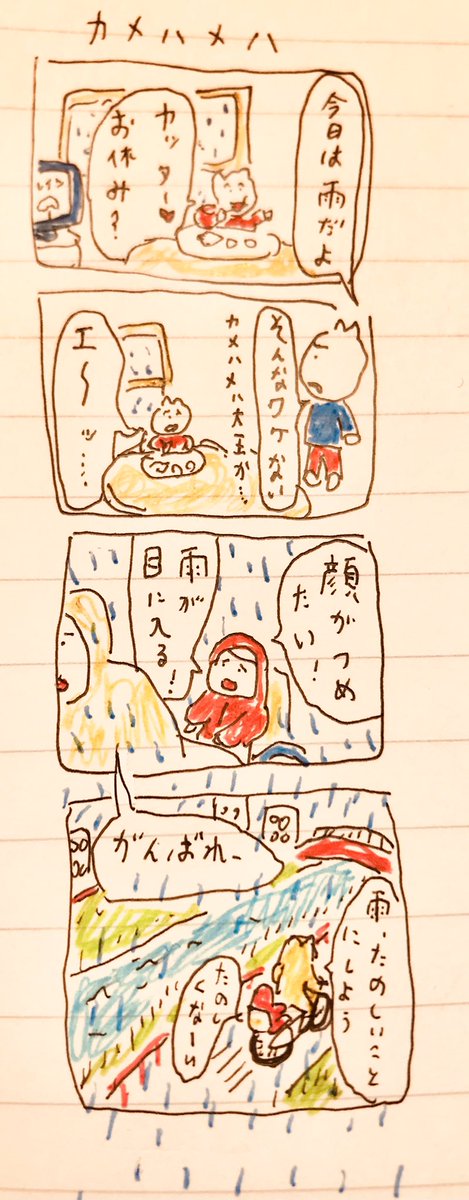 カメハメハ
今日は雨だよ
ヤッター♥
お休み?
そんなワケない
カメハメハ大王が…
エ〜ッ…
顔がつめ
たい!
雨が
目に入る!
がんばれ、
雨、たのしいこと
にしよう
たのし
くなーい